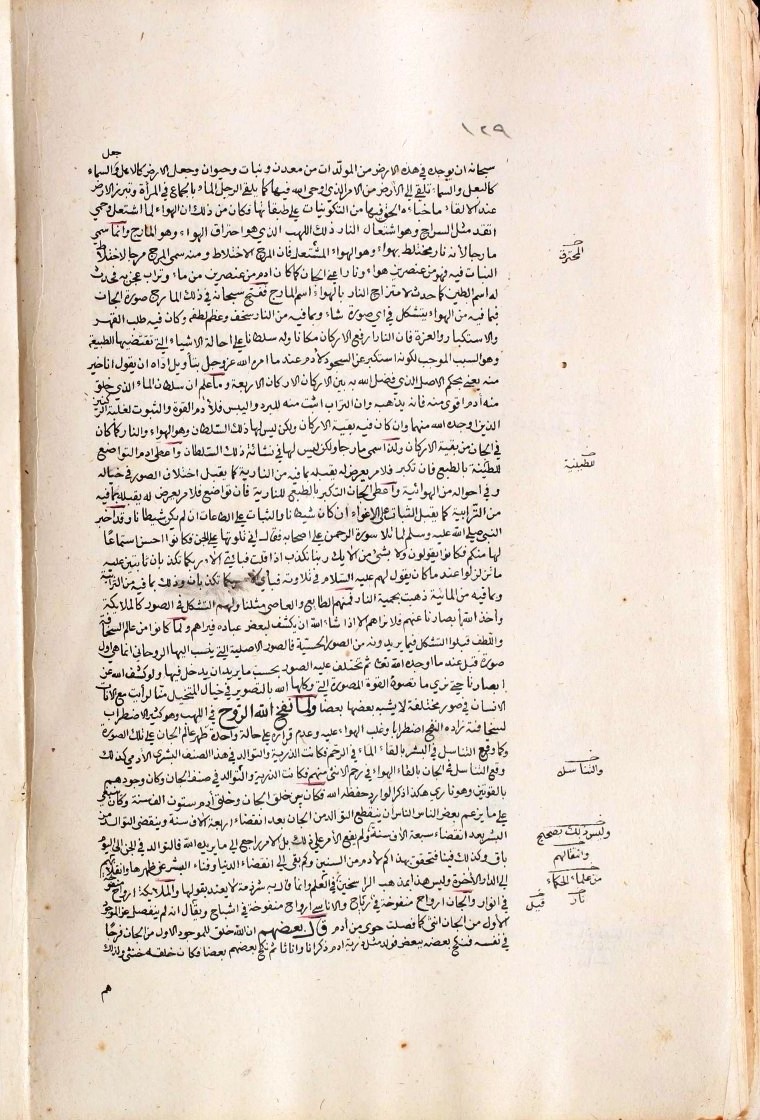 ١٢٩
جعل
سبحانه ان يوجد في هذه الارض من المولدات من معدن ونبات وحيوان وجعل الارض كالاهل والسماء
كالبعل والسماء تلقي الى الارض من الامر الذي اوحى الله فيها كما يلقي الرجل الماء بالجماع في المرأة وتبرز الارض
عند الالقاء ما خباه الحق فيها من التكوينات على طبقاتها فكان من ذلك ان الهواء لما اشتعل وحمي
اتقد مثل السراج وهو اشتعال النار ذلك اللهب الذي هو احتراق الهواء وهو المارج وانما سمي
مارجا لانه نار مختلط بهواء وهو الهواء المشتعل فان المرج الاختلاط ومنه سمي المرج مرجا لاختلاط
النبات فيه فهو من عنصرين هواء ونار اعني الجان كما كان ادم من عنصرين من ماء وتراب عجن به فحدث
له اسم الطين كما حدث لامتزاج النار بالهواء اسم المارج ففتح سبحانه في ذلك المارج صورة الجان
فبما فيه من الهواء يتشكل في اي صورة شاء وبما فيه من النار سخف وعظم لطفه وكان فيه طلب القهر
والاستكبار والعزة فان النار ارفع الاركان مكانا وله سلطان على احالة الاشياء التي تقتضيها الطبيعة
وهو السبب الموجب لكونه استكبر عن السجود لادم عندما امره الله عز وجل بتأويل اداه ان يقول انا خير
منه يعني بحكم الاصل الذي فضل الله به بين الاركان الاربعة وما علم ان سلطان الماء الذي خلق
منه ادم اقوى منه فانه يذهبه وان التراب اثبت منه للبرد واليبس فلادم القوة والثبوت لغلبة الركنين
الذين اوجده الله منهما وان كان فيه بقية الاركان ولكن ليس لها ذلك السلطان وهو الهواء والنار كما كان
في الجان من بقية الاركان ولذا سمي مارجا ولكن ليس لها في نشاته ذلك السلطان واعطي ادم التواضع
للطينة بالطبع فان تكبر فلامر يعرض له يقبله بما فيه من النارية كما يقبل اختلاف الصور في خياله
وفي احواله من الهوائية واعطي الجان التكبر بالطبع للنارية فان تواضع فلامر يعرض له يقبله بما فيه
من الترابية كما يقبل الثبات على الاغواء ان كان شيطانا والثبات على الطاعات ان لم يكن شيطانا وقد اخبر
النبي صلى الله عليه وسلم لما تلا سورة الرحمن على اصحابه فقال اني تلوتها على الجن فكانوا احسن استماعا
لها منكم فكانوا يقولون ولا بشئ من الايك ربنا نكذب اذا قلت فباي الاء ربكما تكذبان ثابتين عليه
ما تزلزلوا عندما كان يقول لهم عليه السلام في تلاوته فباي الاء ربكما تكذبان وذلك بما فيه من الترابية
وبما فيه من المائية ذهبت بحمية النار فمنهم الطايع والعاصي مثلنا ولهم التشكل في الصور كالملايكة
واخذ الله بابصارنا عنهم فلا نراهم الا اذا شاء الله ان يكشف لبعض عباده فيراهم ولما كانوا من عالم السخافة
واللطف قبلوا التشكل فيما يريدونه من الصور الحسية فالصورة الاصلية التي ينسب اليها الروحاني انما هي اول
صورة قبل عندما اوجده الله تعالى ثم تختلف عليه الصور بحسب ما يريد ان يدخل فيها ولو كشف الله عن
ابصارنا حتى نرى ما تصوره القوة المصورة التي وكلها الله بالتصوير في خيال المتخيل منا لرأيت مع الانات
الانسان في صور مختلفة لا يشبه بعضها بعضا ولما نفخ الله الروح في اللهب وهو كثير الاضطراب
لسخافته زاده النفخ اضطرابا وغلب الهواء عليه وعدم قراره على حالة واحدة ظهر عالم الجان على تلك الصورة
وكما وقع التناسل في البشر بالقاء الماء في الرحم فكانت الذرية والتوالد في هذا الصنف البشري الادمي كذلك
وقع التناسل في الجان بالقاء الهواء في رحم الانثى منهم فكانت الذرية والتوالد في صنف الجان وكان وجودهم
بالقوس وهو ناري هكذا ذكر الوارد حفظه الله فكان بين خلق الجان وخلق ادم ستون الف سنة وكان ينبغي
على ما يزعم بعض الناس ان ينقطع التوالد من الجان بعد انقضاء اربعة الاف سنة وينقضي التوالد من
البشر بعد انقضاء سبعة الاف سنة ولم يقع الامر على ذلك بل الامر راجع الى ما يريده الله فالتوالد في الجن الى اليوم
باق وكذلك فينا فتحقق بهذا كم لادم من السنين وكم بقي الى انقضاء الدنيا وفناء البشر عن ظهرها وانقلابهم
الى الدار الاخرة وليس هذا بمذهب الراسخين في العلم وانما قال به شرذمة لا يعتد بقولها والملايكة ارواح منفوخة
في انوار والجان ارواح منفوخة في رياح والاناسي ارواح منفوخة في اشباح ويقال انه لم يفصل عن الموجود
الاول من الجان انثى كما فصلت حوى من ادم قال بعضهم ان الله خلق للموجود الاول من الجان فرجا
في نفسه فنكح بعضه ببعض فولد مثل ذرية ادم ذكرانا واناثا ثم نكح بعضهم بعضا فكان خلقه خنثى ولذلك
هم
المحترق
للطينية
والتناسل
وليس ذلك بصحيح
وانتقالهم
من علماء الحكماء
نار
قيل